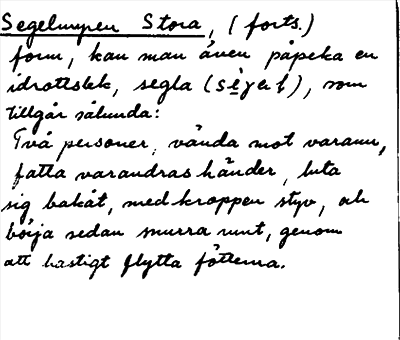 Segelmyren Stora, (forts.)
form, kan man även påpeka en
idrottslek, segla (sègel), som
tillgår sålunda:
Två personer, vända mot varann,
fatta varandras händer, luta
sig bakåt, med kroppen styv, och
börja sedan snurra runt, genom
att hastigt flytta fötterna.